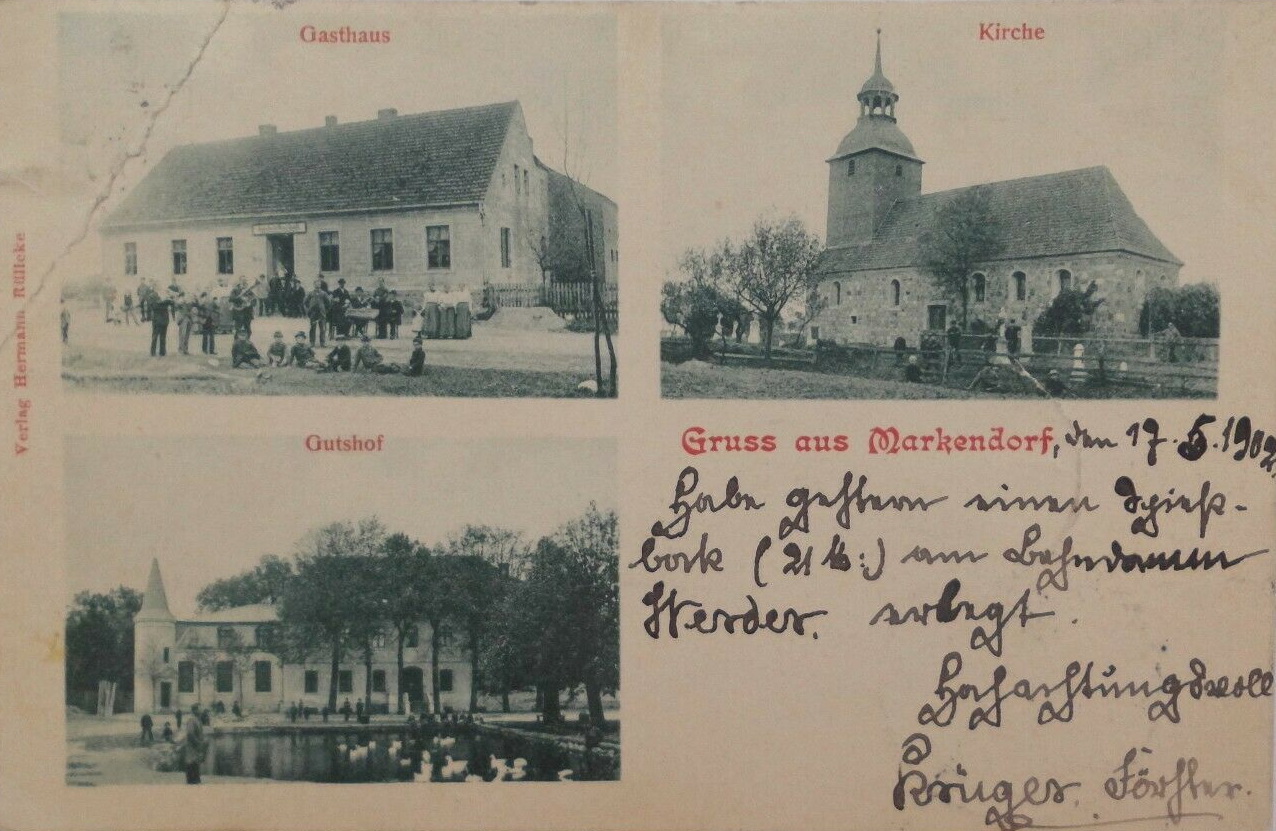 Gasthaus
Kirche
Verlag Hermann Rülicke
Gutshof
Gruss aus Markendorf, den 17.5.1902.
Habe gestern einen Spieß-
bock (21 k:) am Bahndamm
Werder, erlegt.
Hochachtungsvoll
Krüger, Förster.